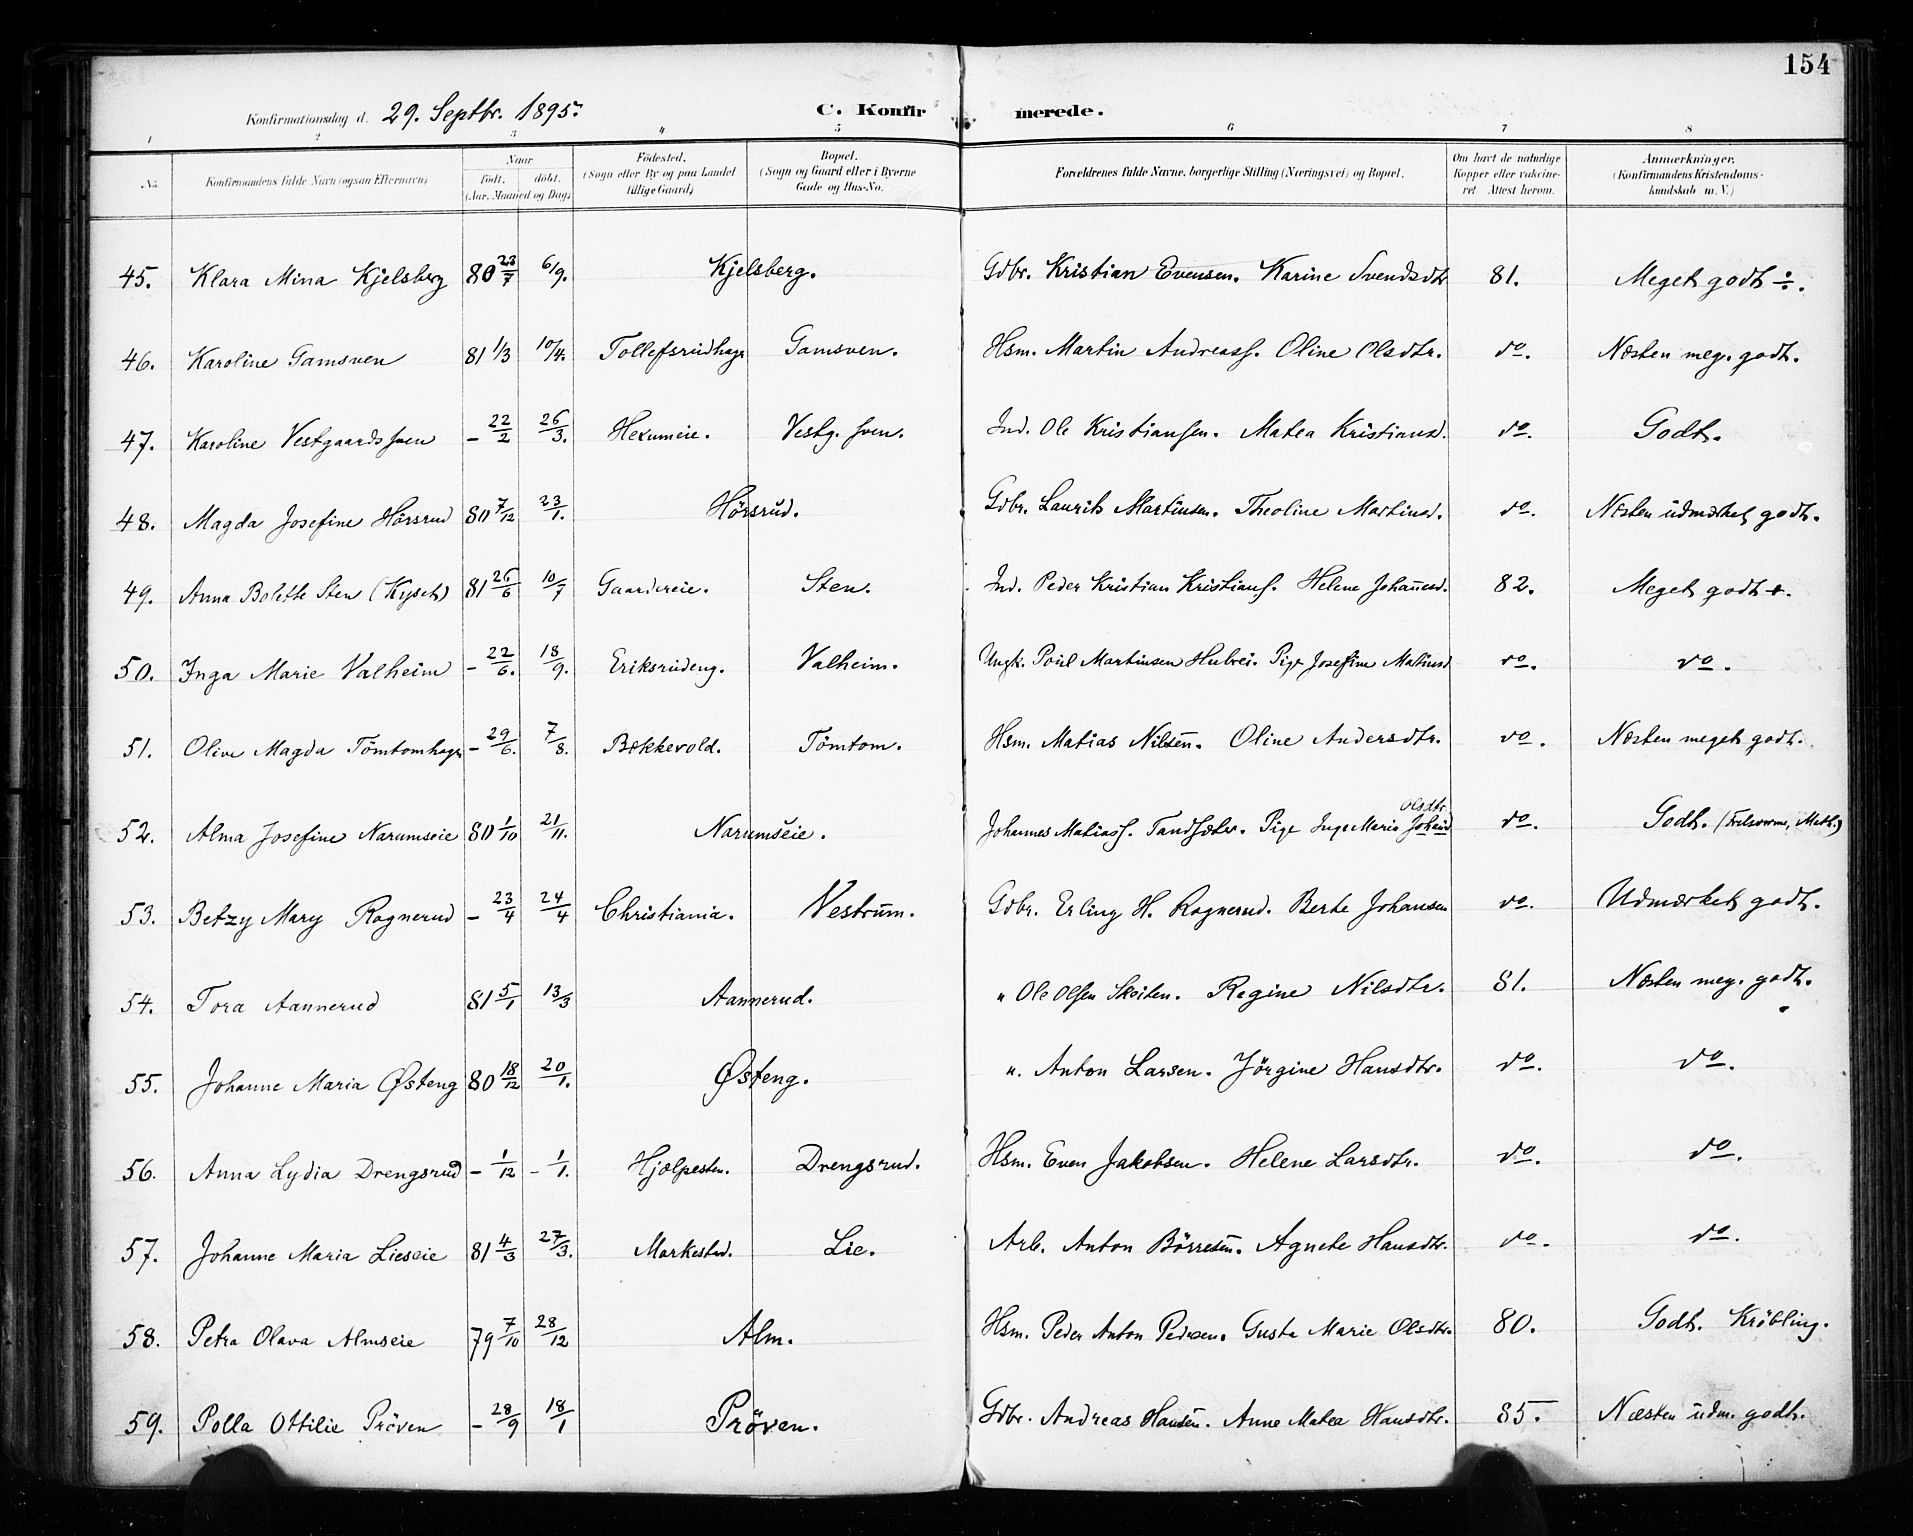 154
Konfirmationsdag d. 29. Septbr. 1895. C. Konfirmerede.
1 2 3 4 5 6 7 8
No. Konfirmandens fulde Navn (ogsaa Efternavn) Naar født. døbt. (Aar, Maaned og Dag) Fødested. (Sogn eller By og paa Landet tillige Gaard) Bopæl. (Sogn og Gaard eller i Byerne Gade og Hus-No. Forældrenes fulde Navne, borgerlige Stilling (Næringsvei) og Bopæl. Om havt de naturlige Kopper eller vakcineret. Attest herom. Anmærkninger. (Konfirmandens Kristendomskundskab m. V.)
45. Klara Mina Kjelsberg 80 23/7 6/9. Kjelsberg. Gdbr. Kristian Evensen. Karine Svendsdtr 81. Meget godt ÷.
46. Karoline Gamsven 81 1/3 10/4. Tollefsrudhage Gamsven. Hsm. Martin Andreass. Oline Olsdtr. do. Næsten meg. godt.
47. Karoline Vestgaardssven - 22/2 26/3. Hexumeie. Vestg. sven. Ind. Ole Kristiansen. Matea Kristiansd. do. Godt.
48. Magda Josefine Hörsrud 80 7/12 23/1. Hörsrud. Gdbr. Laurits Martinsen. Theoline Martinsd. do. Næsten udmærket godt.
49. Anna Bolette Sten (Kyset) 81 26/6 10/7 Gaardereie. Sten. Ind. Peder Kristian Kristians. Helene Johannesd. 82. Meget godt +.
50. Inga Marie Valheim - 22/6. 18/9. Eriksrudeng. Valheim. Ungk. Poul Martinsen Hubrei. Pige Josefine Matiusd do. do.
51. Olive Magda Tömtomhage - 29/6. 7/8. Bækkevold. Tömtom. Hsm. Matias Nilsen. Oline Andersdtr. do. Næsten meget godt.
52. Alma Josefine Narumseie 80 1/10 21/11. Narumseie. Johannes Matiass. Tandsæter. Pige Inge Marie Johansd Olsdtr. do. Godt. (Frelserarme, Meth.)
53. Betzy Mary Rognerud - 23/4 24/4 Christiania. Vestrum. Gdbr. Erling H. Rognerud. Berte Johansen do. Udmærket godt.
54. Tora Aannerud 81 5/1 13/3 Aannerud. " Ole Olsen Skoiten. Regine Nilsdtr. 81. Næsten meg. godt.
55. Johanne Maria Østeng 80 18/12 20/1. Østeng. ". Anton Larsen. Jörgine Hansdtr. do. do.
56. Anna Lydia Drengsrud - 1/12 - 1/1. Hjælpesten. Drengsrud. Hsm. Even Jakobsen. Helene Larsdtr. do. do.
57. Johanne Maria Lieseie 81 4/3 27/3. Markestad. Lie. Arb. Anton Börresen. Agnete Hansdtr. do. do.
58. Petra Olava Almseie 79 7/10 28/12 Alm. Hsm. Peder Anton Pedersen. Gusta Marie Olsdtr. 80. Godt. Kröbling.
59. Polla Ottilie Pröven - 28/9 18/1 Pröven. Gdbr. Andreas Hansen. Anne Matea Hansdtr. 85. Næsten udm. godt.